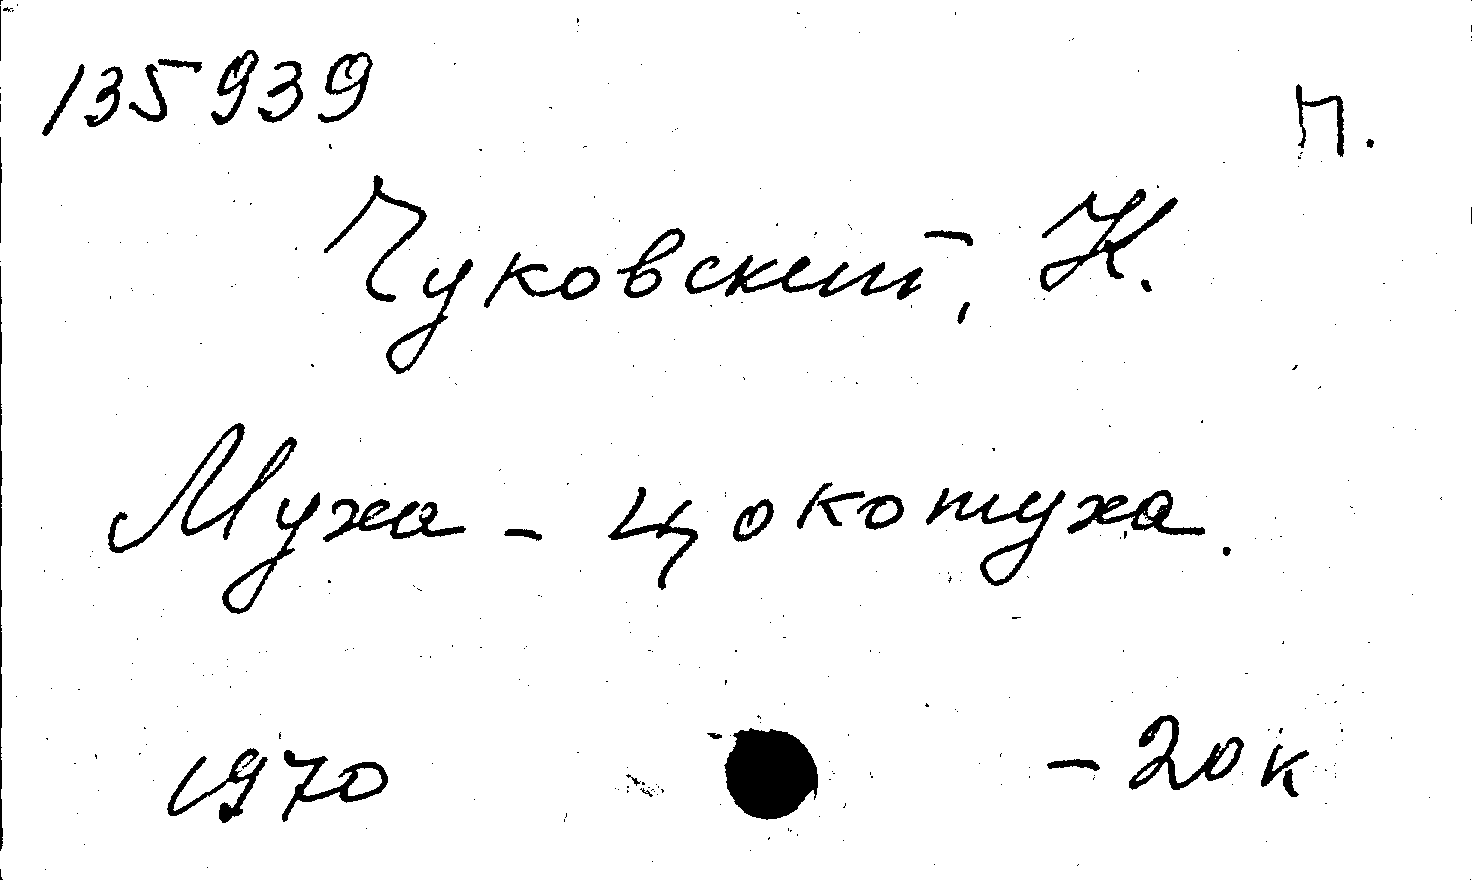 135939
П.
Чуковский, К.
Муха - цокотуха.
1970 - 20 к